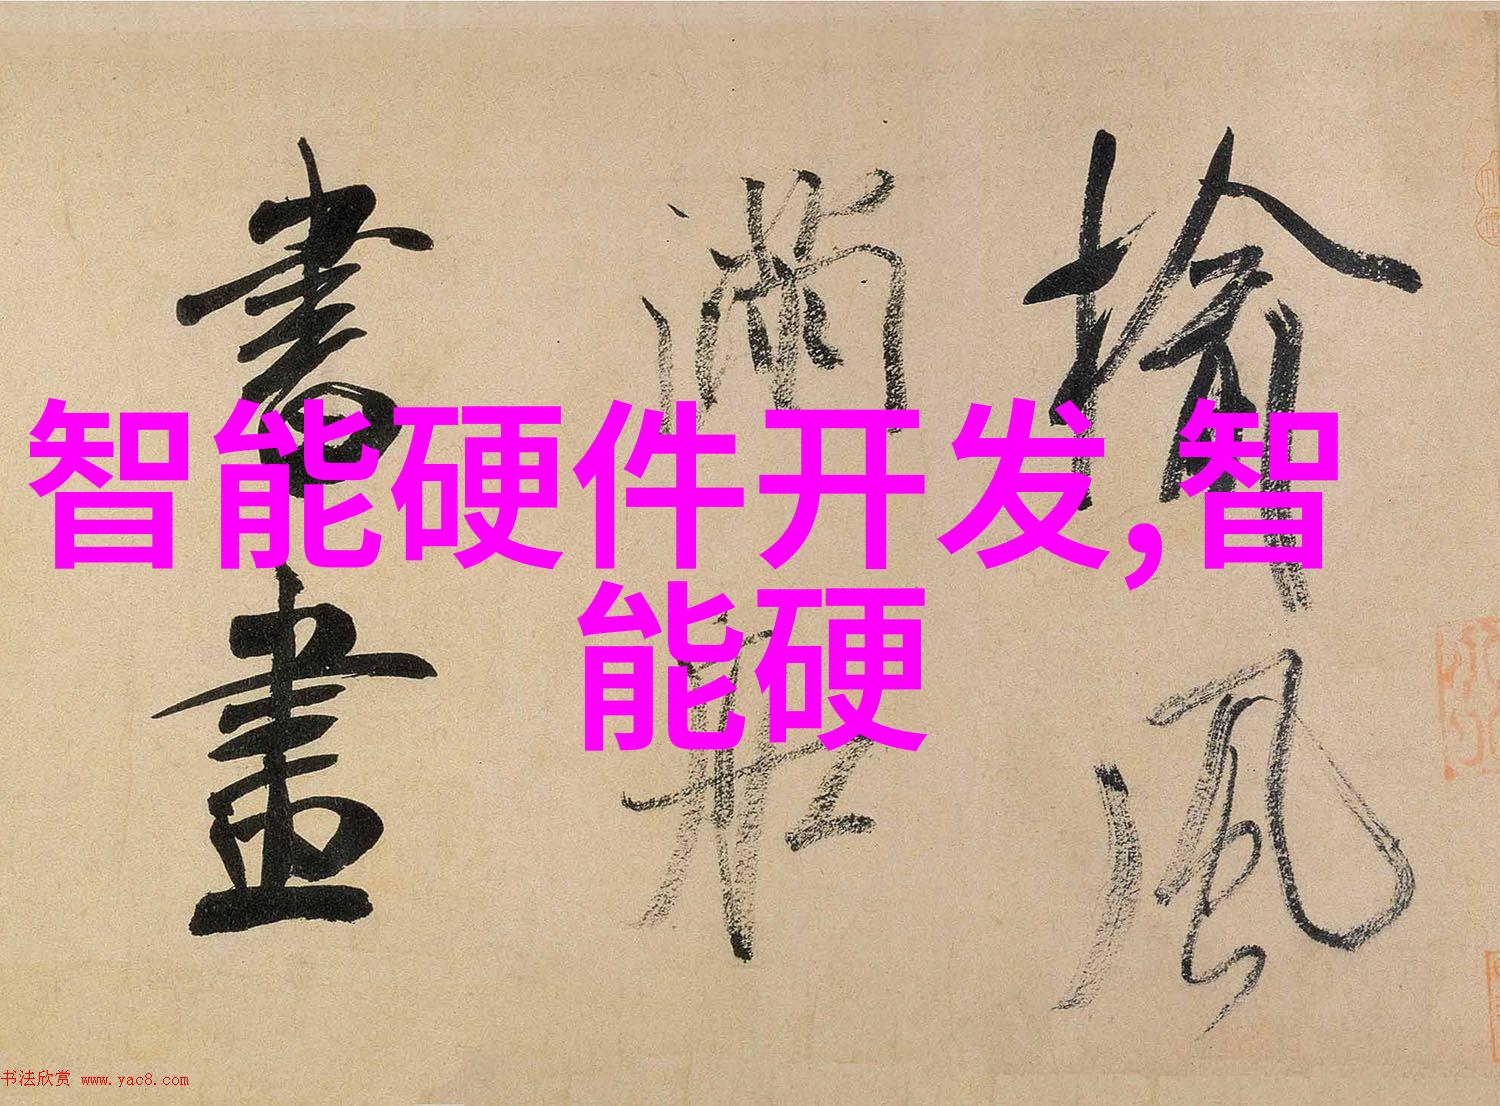 智能硬件开发,智
能硬
榆風
滿舡
書畫
书法欣赏 www.yac8.com